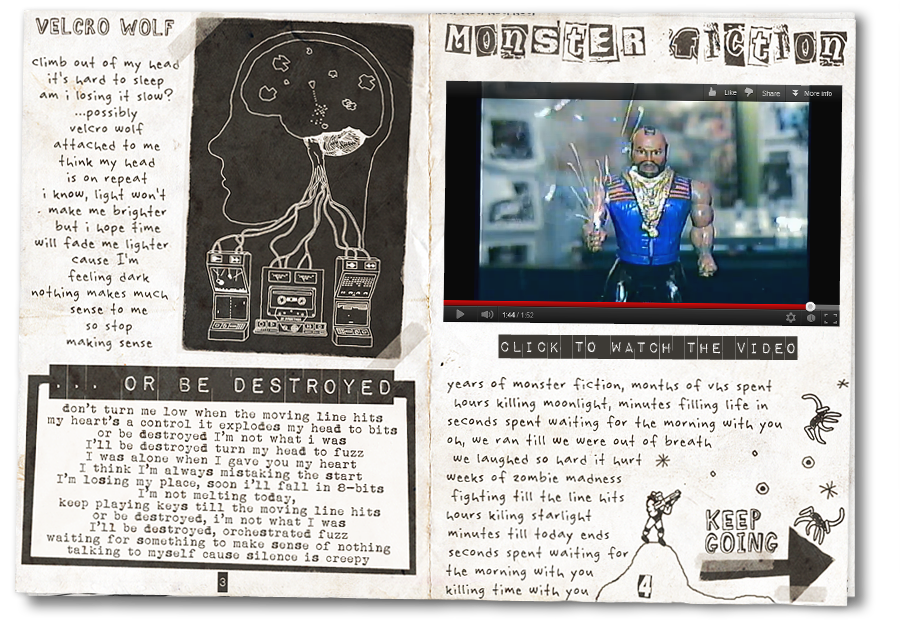 VELCRO WOLF
climb out of my head
it's hard to sleep
am i losing it slow?
...possibly
velcro wolf
attached to me
think my head
is on repeat
i know, light won't
make me brighter
but i hope time
will fade me lighter
cause I'm
feeling dark
nothing makes much
sense to me
so stop
making sense
... OR BE DESTROYED
don't turn me low when the moving line hits
my heart's a control it explodes my head to bits
or be destroyed I'm not what i was
I'll be destroyed turn my head to fuzz
I was alone when I gave you my heart
I think I'm always mistaking the start
I'm losing my place, soon i'll fall in 8-bits
I'm not melting today,
keep playing keys till the moving line hits
or be destroyed, i'm not what I was
I'll be destroyed, orchestrated fuzz
waiting for something to make sense of nothing
talking to myself cause silence is creepy
3
MONSTER fiction
Like Share More info
1:44 / 1:52
CLICK TO WATCH THE VIDEO
years of monster fiction, months of vhs spent
hours killing moonlight, minutes filling life in
seconds spent waiting for the morning with you
oh, we ran till we were out of breath
we laughed so hard it hurt
weeks of zombie madness
fighting till the line hits
hours kiling starlight
minutes till today ends
seconds spent waiting for
the morning with you
killing time with you
KEEP
GOING
4